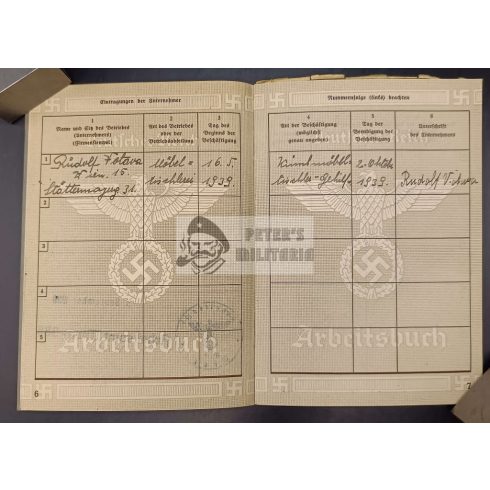 Eintragungen der Unternehmer
1
Name und Sitz des Betriebes
(Unternehmers)
(Firmenstempel)
2
Art des Betriebes
oder der
Betriebsabteilung
3
Tag des
Beginns der
Beschäftigung
1
Rudolf
Wien 16.
31.
Möbel-
tischlerei
16. 5.
1939.
2
3
4
5
Arbeitsbuch
6
Nummernfolge (links) beachten
4
Art der Beschäftigung
(möglichst
genau angeben)
5
Tag der
Beendigung der
Beschäftigung
6
Unterschrift
des Unternehmers
tischler-Gehilfe
1939.
Rudolf
Arbeitsbuch
7
PETER'S
MILITARIA